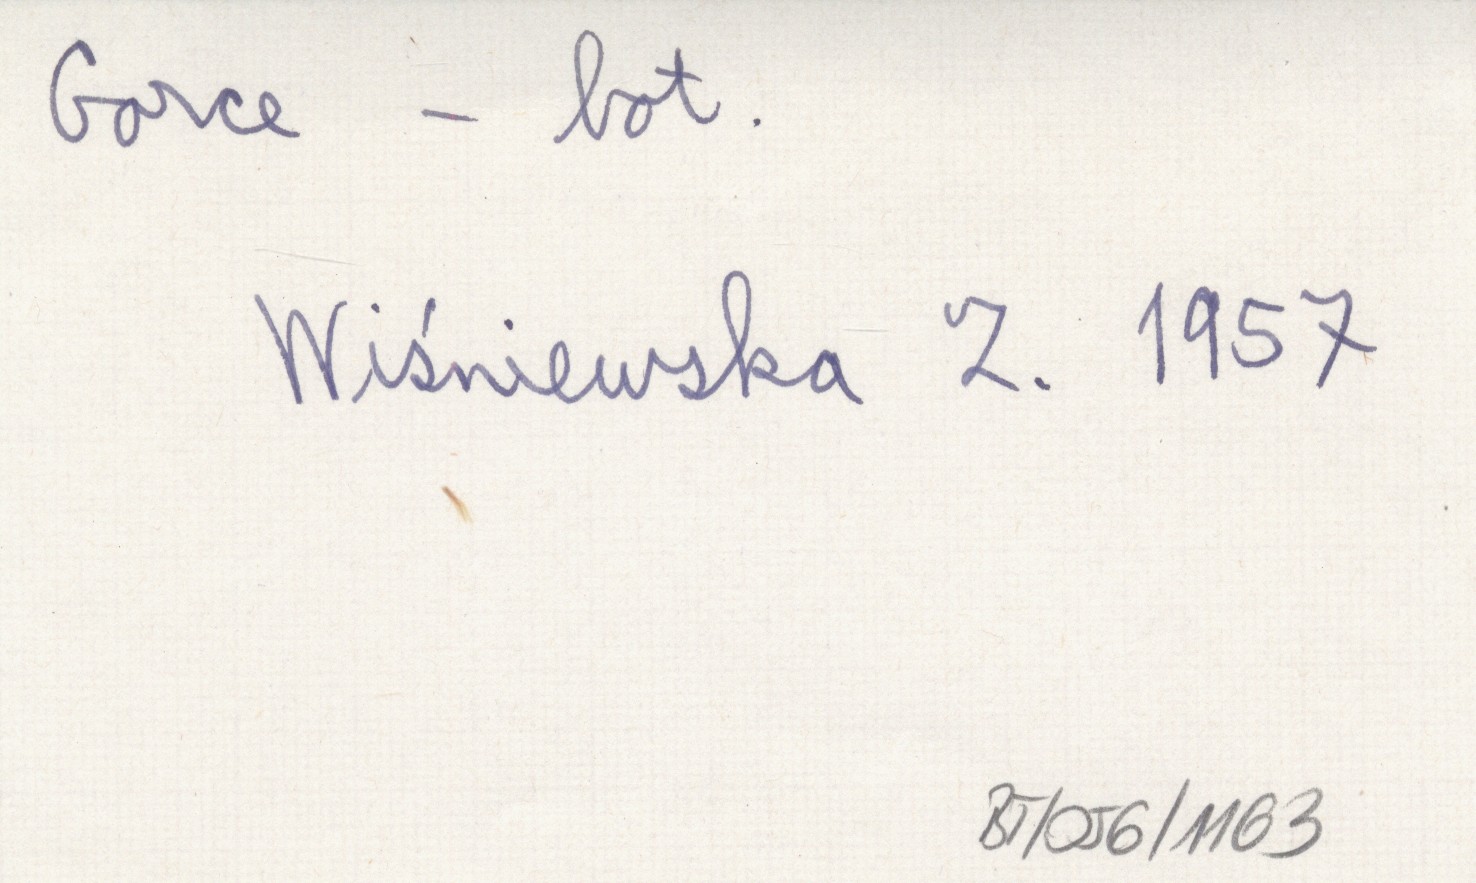 Gorce - bot.
Wiśniewska Z. 1957
BT/056/1163